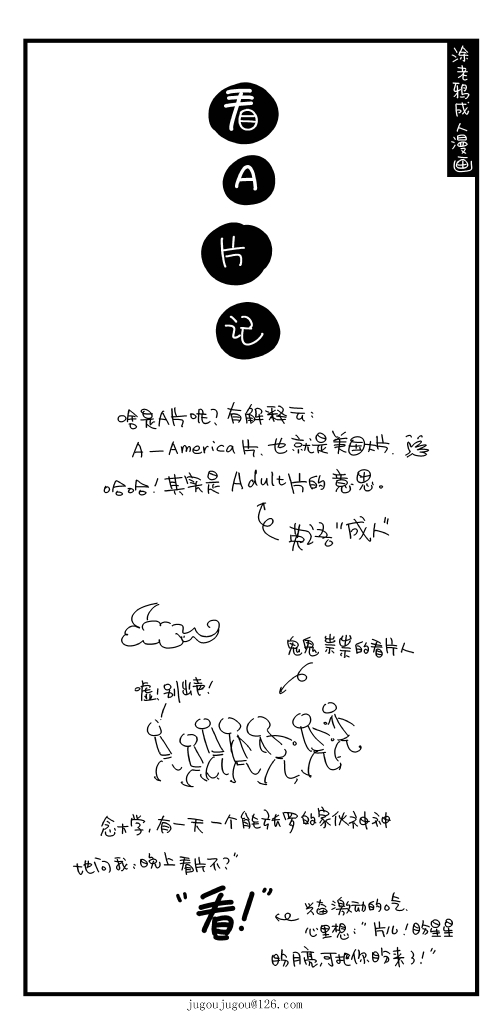 涂老鸦成人漫画
看
A
片
记
啥是A片呢?有解释云:
A—America片、也就是美国大片.
哈哈!其实是 Adult片的意思。
英语"成人"
鬼鬼祟祟的看片人
嘘!别出声!
念大学,有一天一个能张罗的家伙神神
地问我:晚上看片不?"
"看!"
兴奋激动的吃.
心里想:"片儿!盼星星
盼月亮,可把你盼来了!"
jugoujugou@126.com